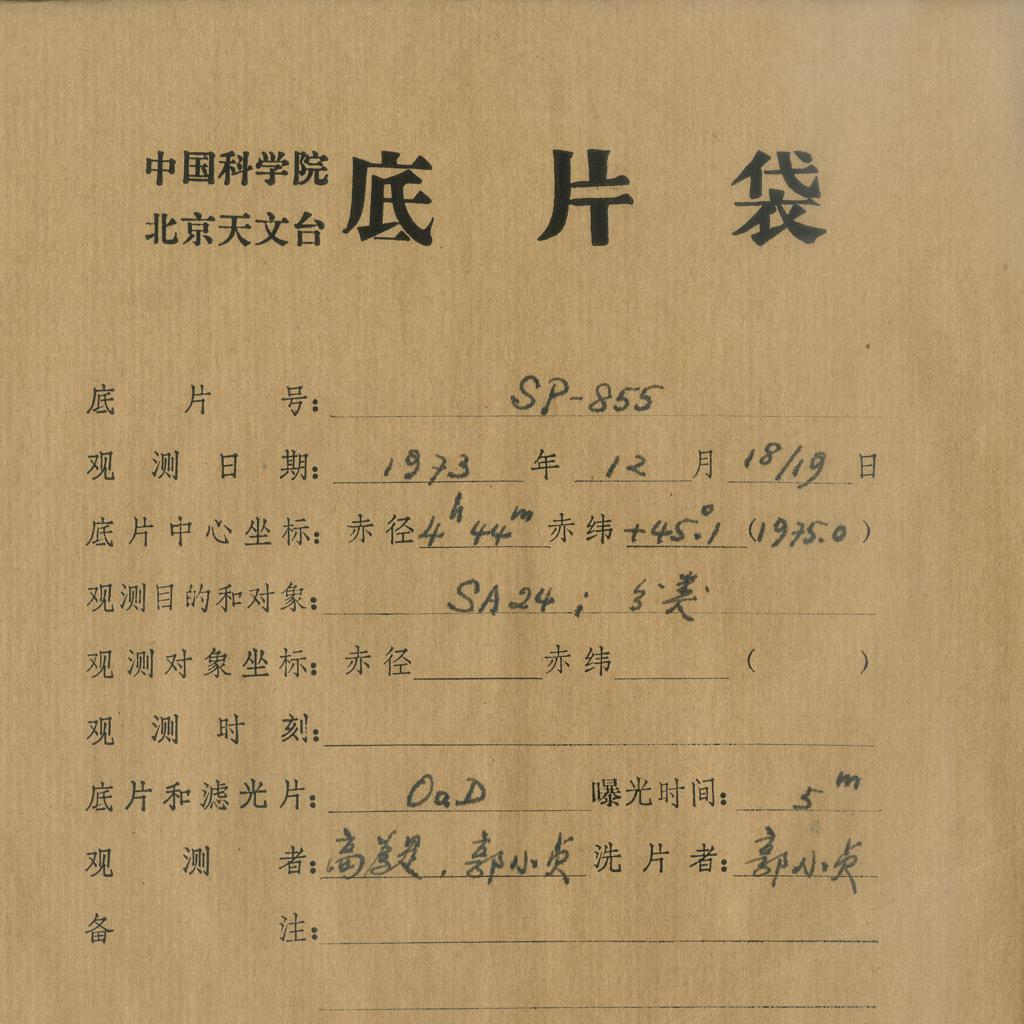 中国科学院
北京天文台
底片袋
底片号：SP-855
观测日期：1973年12月18/19日
底片中心坐标：赤径4h44m赤纬+45°.1（1975.0）
观测目的和对象：SA24；分类
观测对象坐标：赤径 赤纬 （ ）
观测时刻：
底片和滤光片：OaD 曝光时间：5m
观测者：高 ，郭小贞 洗片者：郭小贞
备注：